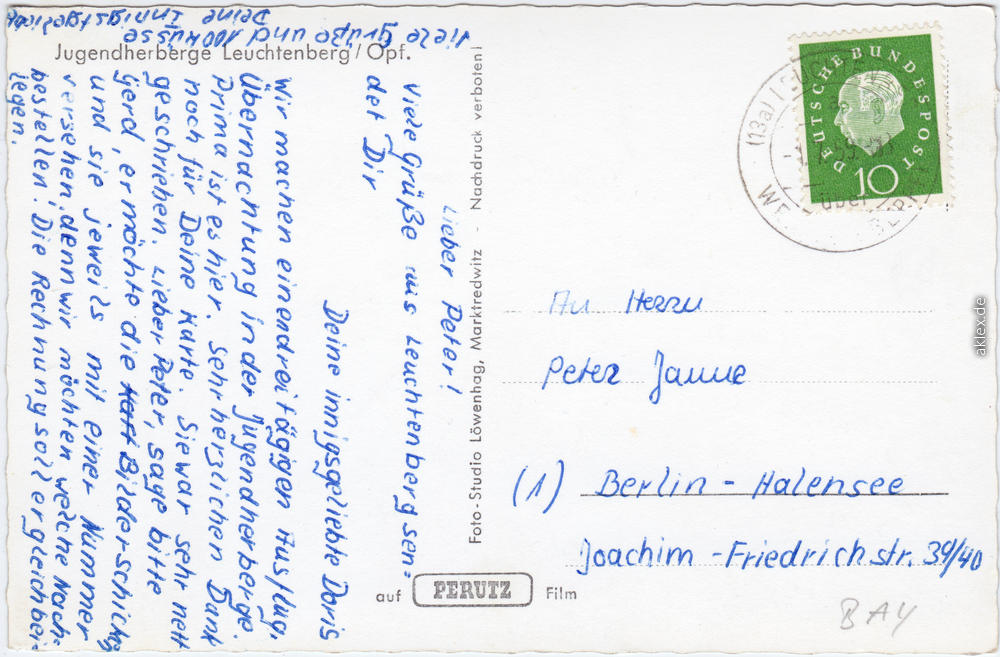 Jugendherberge Leuchtenberg/Opf.
Lieber Peter!
Viele Grüße aus Leuchtenberg sen=
det Dir
Deine innigsgeliebte Doris
Wir machen einen dreitägigen Ausflug.
Übernachtung in der Jugendherberge.
Prima ist es hier. Sehr herzlichen Dank
noch für Deine Karte. Sie war sehr nett
geschrieben. Lieber Peter, sage bitte
Gerd, er möchte die Bilder schicken
und sie jeweils mit einer Nummer
versehen, denn wir möchten welche Nach=
bestellen! Die Rechnung soll er gleich bei=
legen.
Viele Grüße und 1000 Küsse
Deine Innigstgeliebte
Foto-Studio Löwenhag, Marktredwitz - Nachdruck verboten!
auf PERUTZ Film
DEUTSCHE BUNDESPOST
10
(13a) LEUCHTENB
59
über
An Herrn
Peter Janne
(1) Berlin - Halensee
Joachim - Friedrichstr. 39/40
BAY
aklex.de